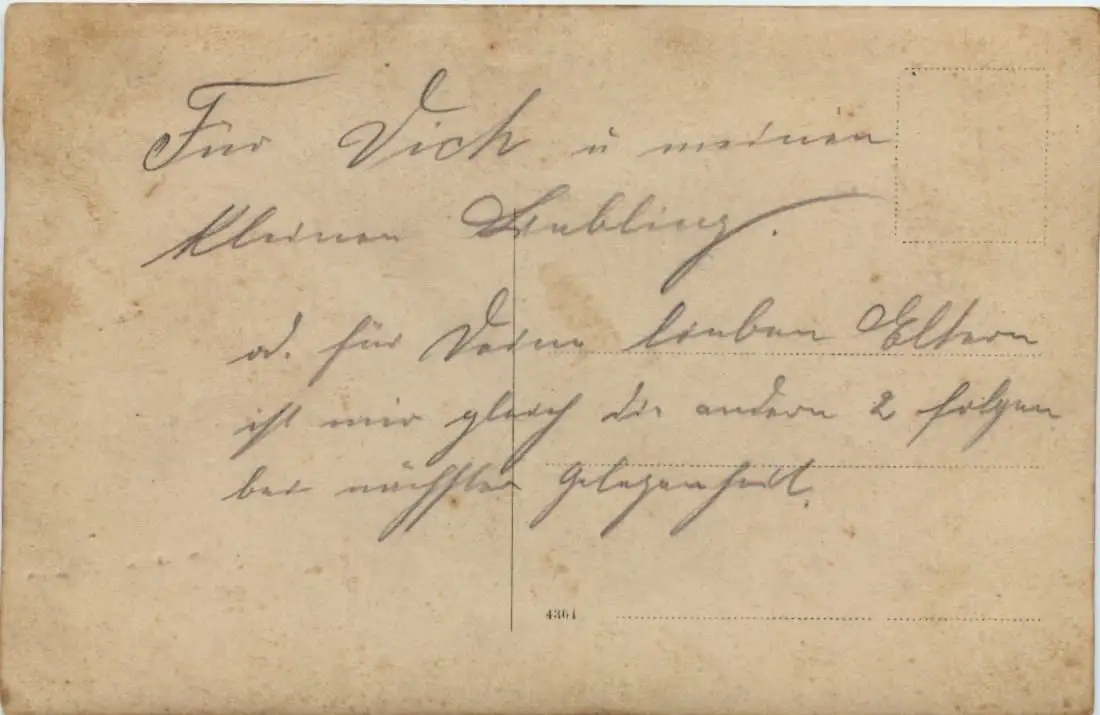 Für Dich u meinen
kleinen Liebling.
od. für Deine lieben Eltern
ist mir gleich die andern 2 folgen
bei nächster Gelegenheit.
4361